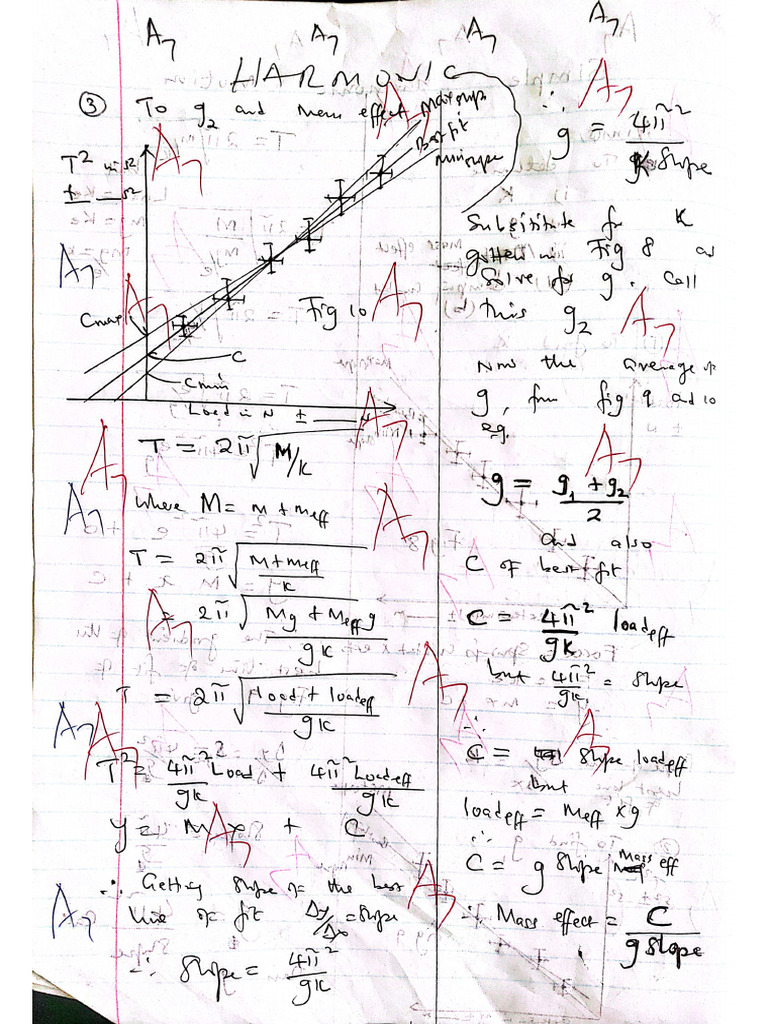 A7 A7 A7 A7
HARMONIC
③ To g2 and mass effect
Max slope
Best fit
Min slope
T² in s²
± __ s²
Cmax
C
Cmin
Fig 10
Load in N ± ___ N
T = 2π√M/K
where M = m + meff
T = 2π√m+meff/K
= 2π√Mg + Meff g/gK
T = 2π√load + loadeff/gK
T² = 4π²/gK Load + 4π² Loadeff/gK
y = M x + C
∴ Getting slope of the best
line of fit Δy/Δx = slope
∴ slope = 4π²/gK
∴ g = 4π²/K slope
Substitute for K
gotten in Fig 8 as
Solve for g. Call
this g2
Now the average of
g, from fig 9 and 10
eg.
g = g1 + g2/2
and also
C of best fit
C = 4π²/gK loadeff
but 4π²/gK = slope
∴
C = slope loadeff
but
loadeff = Meff x g
∴
C = g slope Mass eff
∴ Mass effect = C/g slope
A7 A7 A7 A7 A7 A7 A7 A7 A7 A7 A7 A7 A7 A7 A7 A7 A7 A7